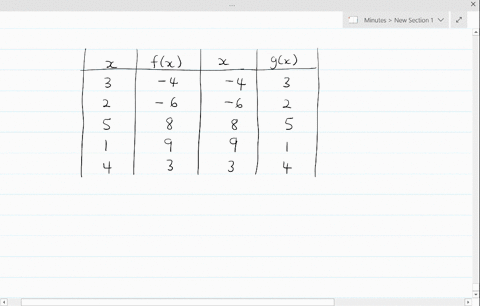 Minutes > New Section 1
x f(x) x g(x)
3 -4 -4 3
2 -6 -6 2
5 8 8 5
1 9 9 1
4 3 3 4